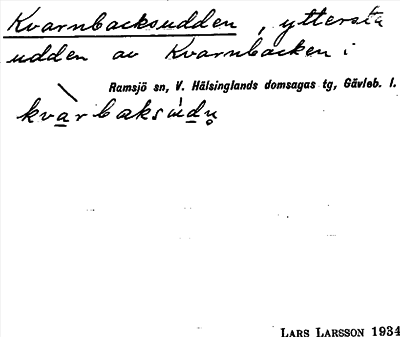 Kvarnbacksudden, yttersta
udden av Kvarnbacken i
Ramsjö sn, V. Hälsinglands domsagas tg, Gävleb. l.
kvàrbaksúdn̥
LARS LARSSON 1934